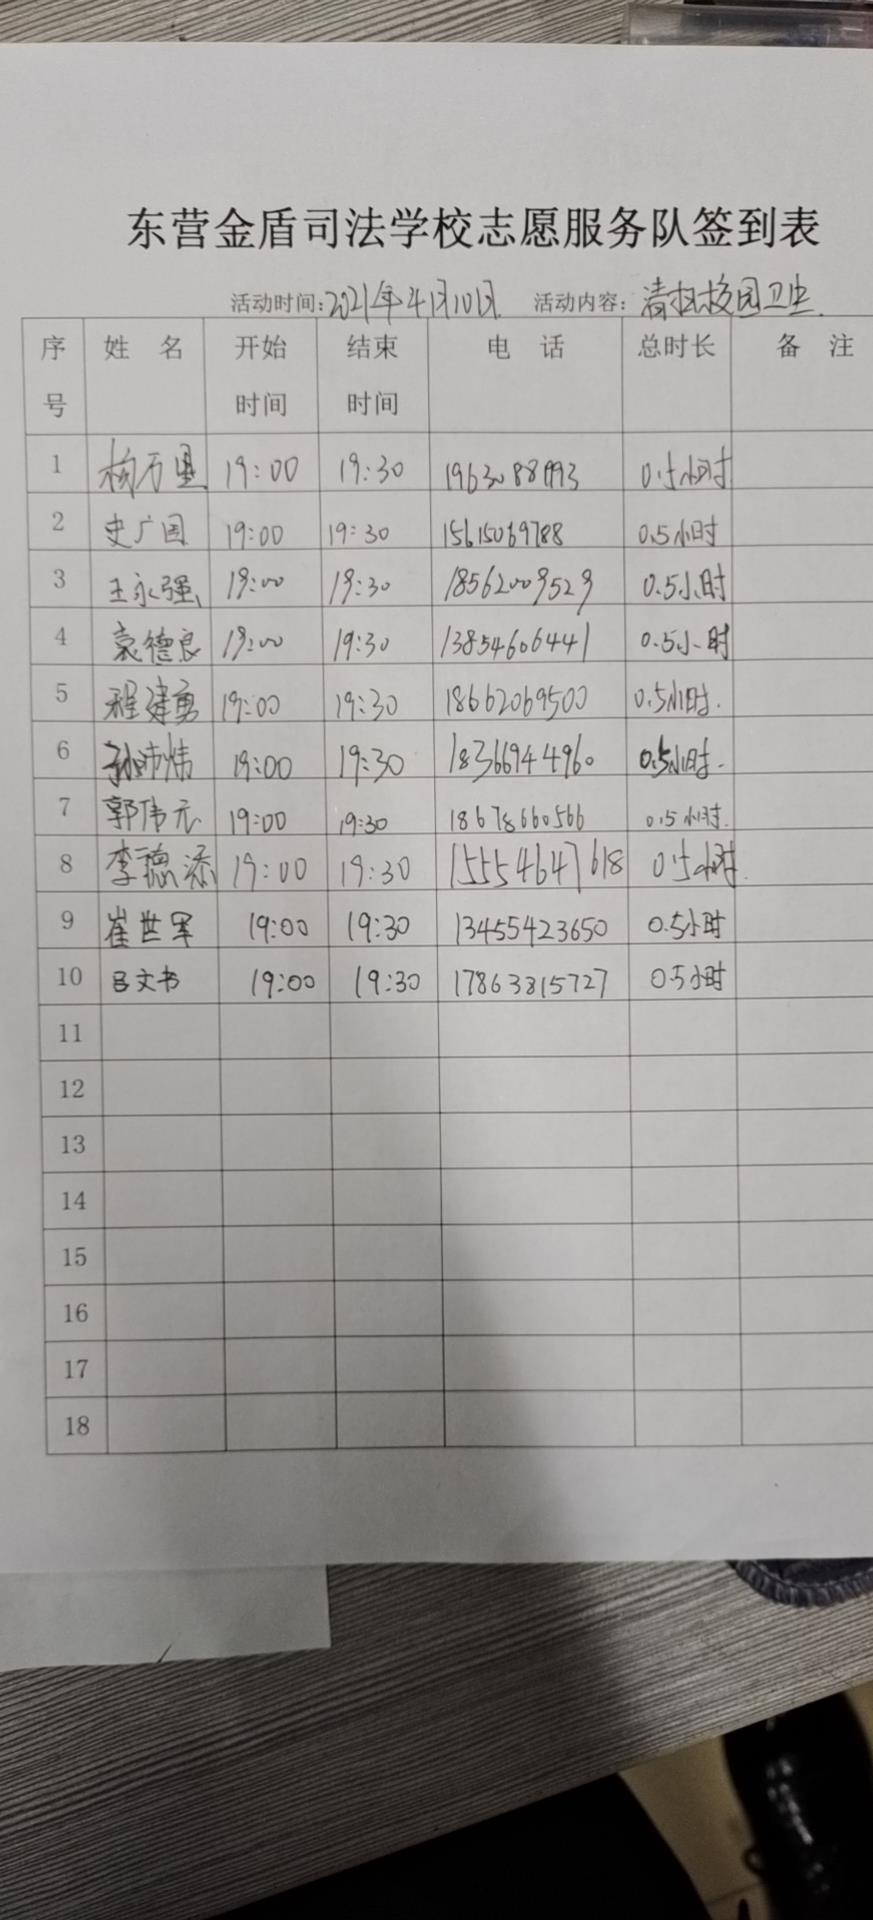 东营金盾司法学校志愿服务队签到表
活动时间:2021年4月10日 活动内容:清扫校园卫生.
序号 姓 名 开始时间 结束时间 电 话 总时长 备 注
1 杨万里 19:00 19:30 0.5小时
2 史广园 19:00 19:30 15615069788 0.5小时
3 王永强 19:00 19:30 18562009529 0.5小时
4 袁德良 19:00 19:30 13854606441 0.5小时
5 程建勇 19:00 19:30 18662069500 0.5小时.
6 孙沛炜 19:00 19:30 18366944960 0.5小时.
7 郭伟元 19:00 19:30 18678660566 0.5小时.
8 李德添 19:00 19:30 15554647618 0.5小时.
9 崔世军 19:00 19:30 13455423650 0.5小时
10 吕文书 19:00 19:30 17863815727 0.5小时
11
12
13
14
15
16
17
18